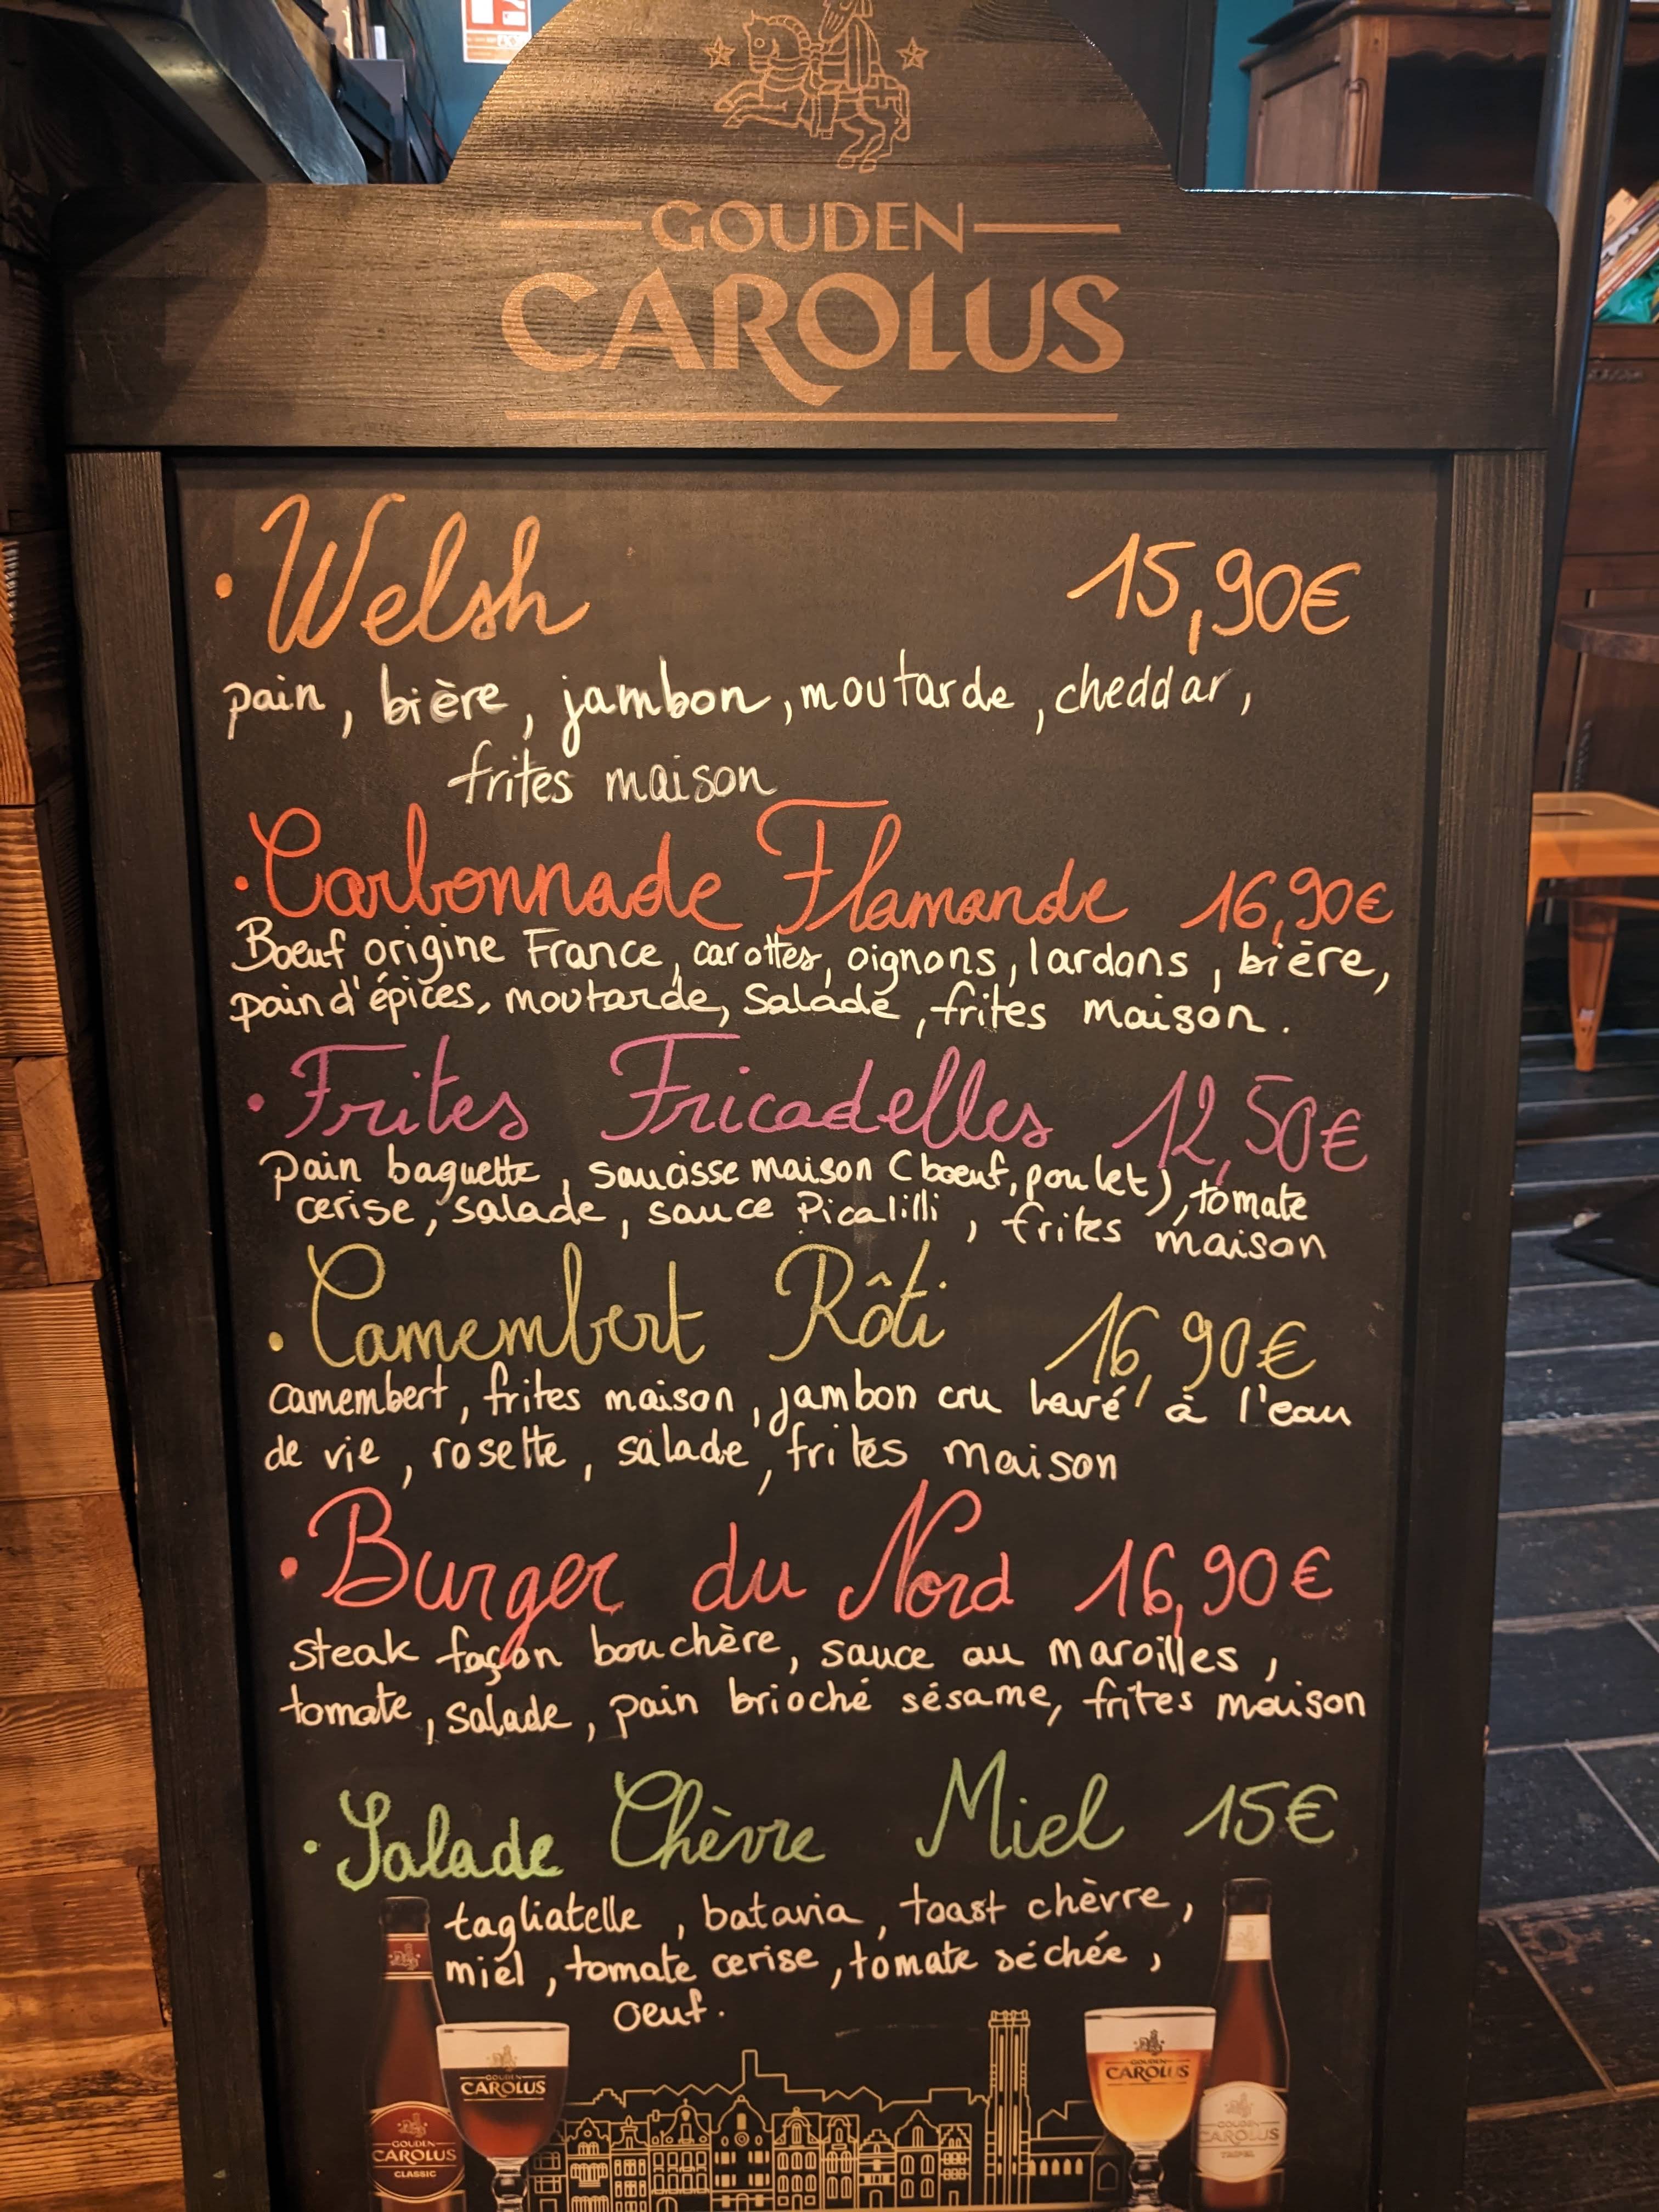 GOUDEN
CAROLUS
• Welsh 15,90€
pain, bière, jambon, moutarde, cheddar,
frites maison
• Carbonnade Flamande 16,90€
Bœuf origine France, carottes, oignons, lardons, bière,
pain d'épices, moutarde, Salade, frites maison.
• Frites Fricadelles 12,50€
Pain baguette, saucisse maison (bœuf, poulet), tomate
cerise, salade, sauce Picalilli, frites maison
• Camembert Rôti 16,90€
camembert, frites maison, jambon cru lavé à l'eau
de vie, rosette, salade, frites maison
• Burger du Nord 16,90€
steak façon bouchère, sauce au maroilles,
tomate, salade, pain brioché sésame, frites maison
• Salade Chèvre Miel 15€
tagliatelle, batavia, toast chèvre,
miel, tomate cerise, tomate séchée,
oeuf.
GOUDEN
CAROLUS
GOUDEN
CAROLUS
GOUDEN
CAROLUS
CLASSIC
GOUDEN
CAROLUS
TRIPEL